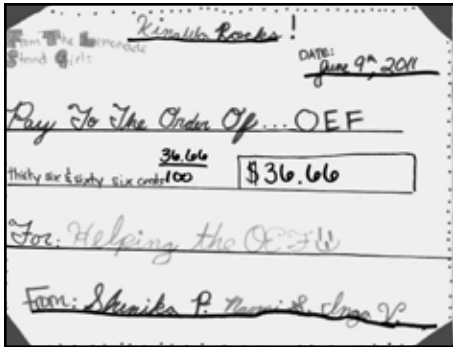 Kinable Rocks!
From The Lemonade
Stand Girls
DATE:
June 9th, 2011
Pay To The Order Of... OEF
36.66
thirty six & sixty six cents/100
$36.66
For: Helping the OEF
From: Shenika P. Naomi S. Inga V.